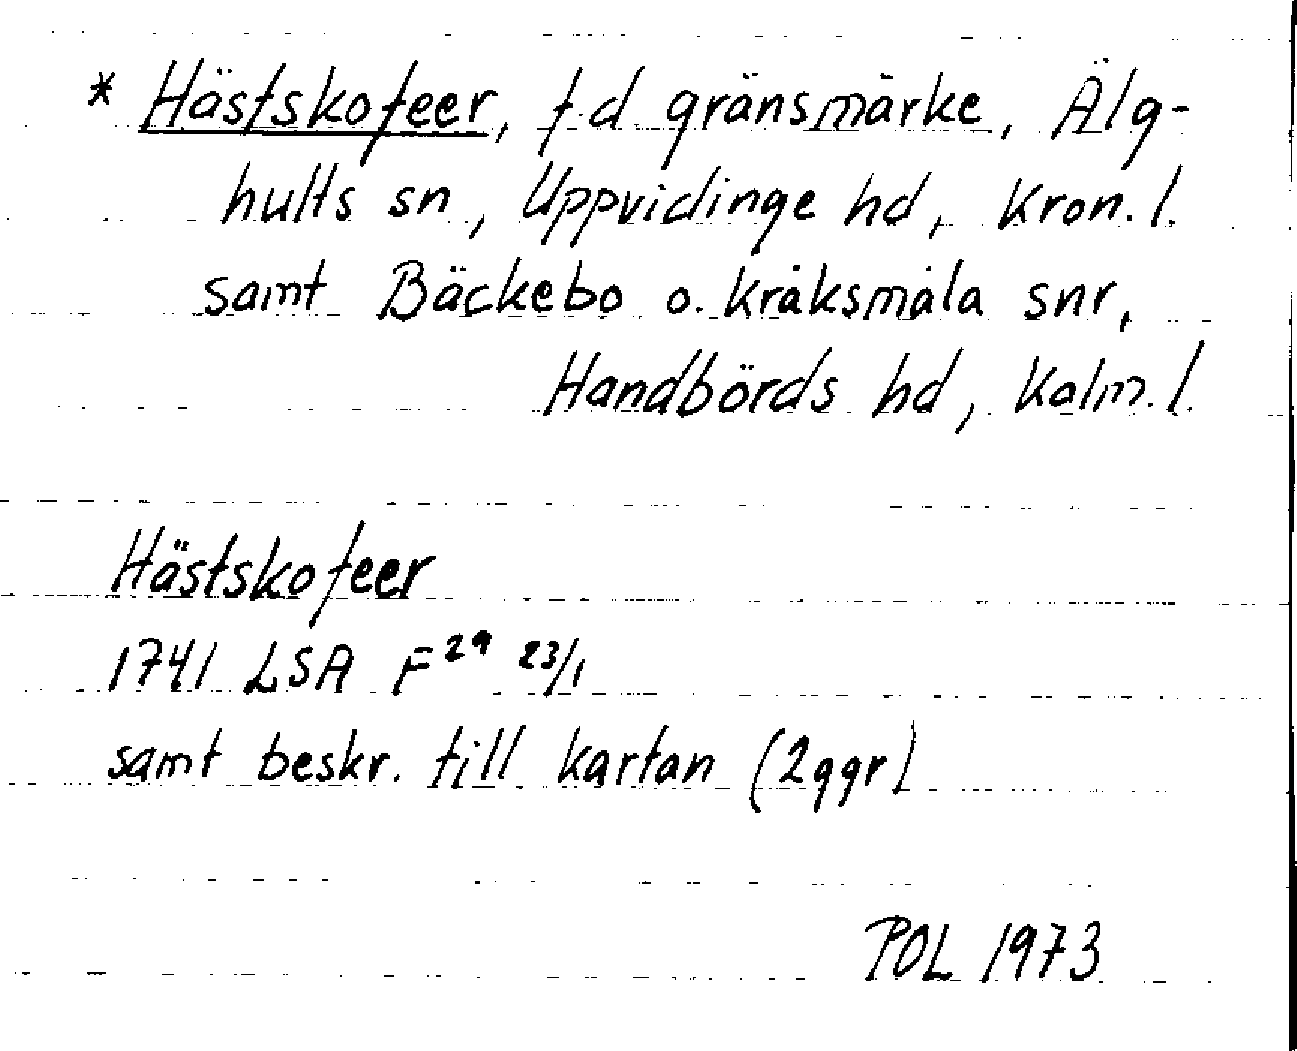 * Hästskofeer, f.d gränsmärke, Älg-
hults sn, Uppvidinge hd, Kron. l.
samt Bäckebo o. Kråksmåla snr,
Handbörds hd, Kalm. l.
Hästskofeer
1741 LSA F²⁹ 23/1
samt beskr. till kartan (2ggr)
POL 1973